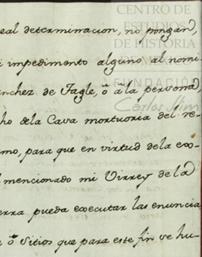 CENTRO DE
ESTUDIOS
DE HISTORIA
FUNDACIÓN
Carlos Slim
eal determinacion, no pongan,
i impedimento alguno al nomi
nchez de Tagle, ò à la persona,
ho dela Cava mortuoria del re-
mo, para que en virtud de la exo-
l mencionado mi Virrey de la
erra pueda executar las enuncia
s ò Sitios que para este fin ve hu-